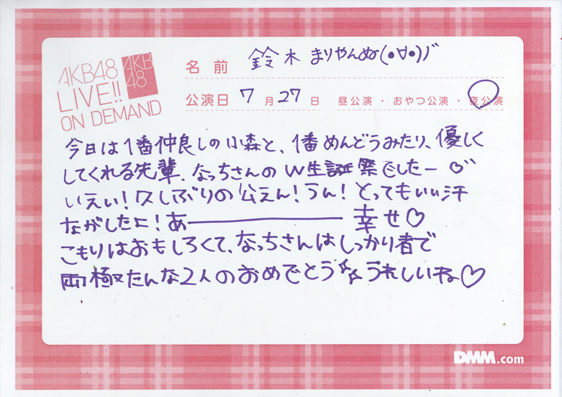 AKB48
LIVE!!
ON DEMAND
AKB
48
名前 鈴木まりやんぬ(•∀•)ﾉﾞ
公演日 7月27日 昼公演・おやつ公演・夜公演
今日は1番仲良しの小森と、1番めんどうみたり、優しく
してくれる先輩、なっちさんのW生誕祭でしたー♡
いえい!久しぶりの公えん!うん!とってもいい汗
ながしたよ!あー幸せ♡
こもりはおもしろくて、なっちさんはしっかり者で
両極たんな2人のおめでとう うれしいね♡
DMM.com